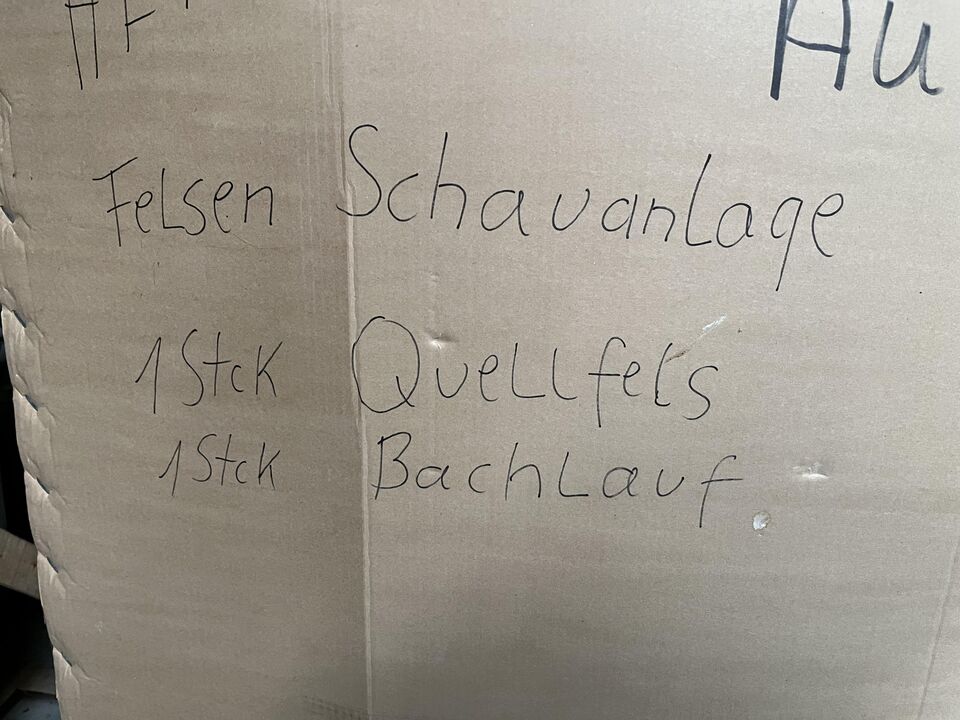 Au
Felsen Schauanlage
1 Stck Quellfels
1 Stck Bachlauf